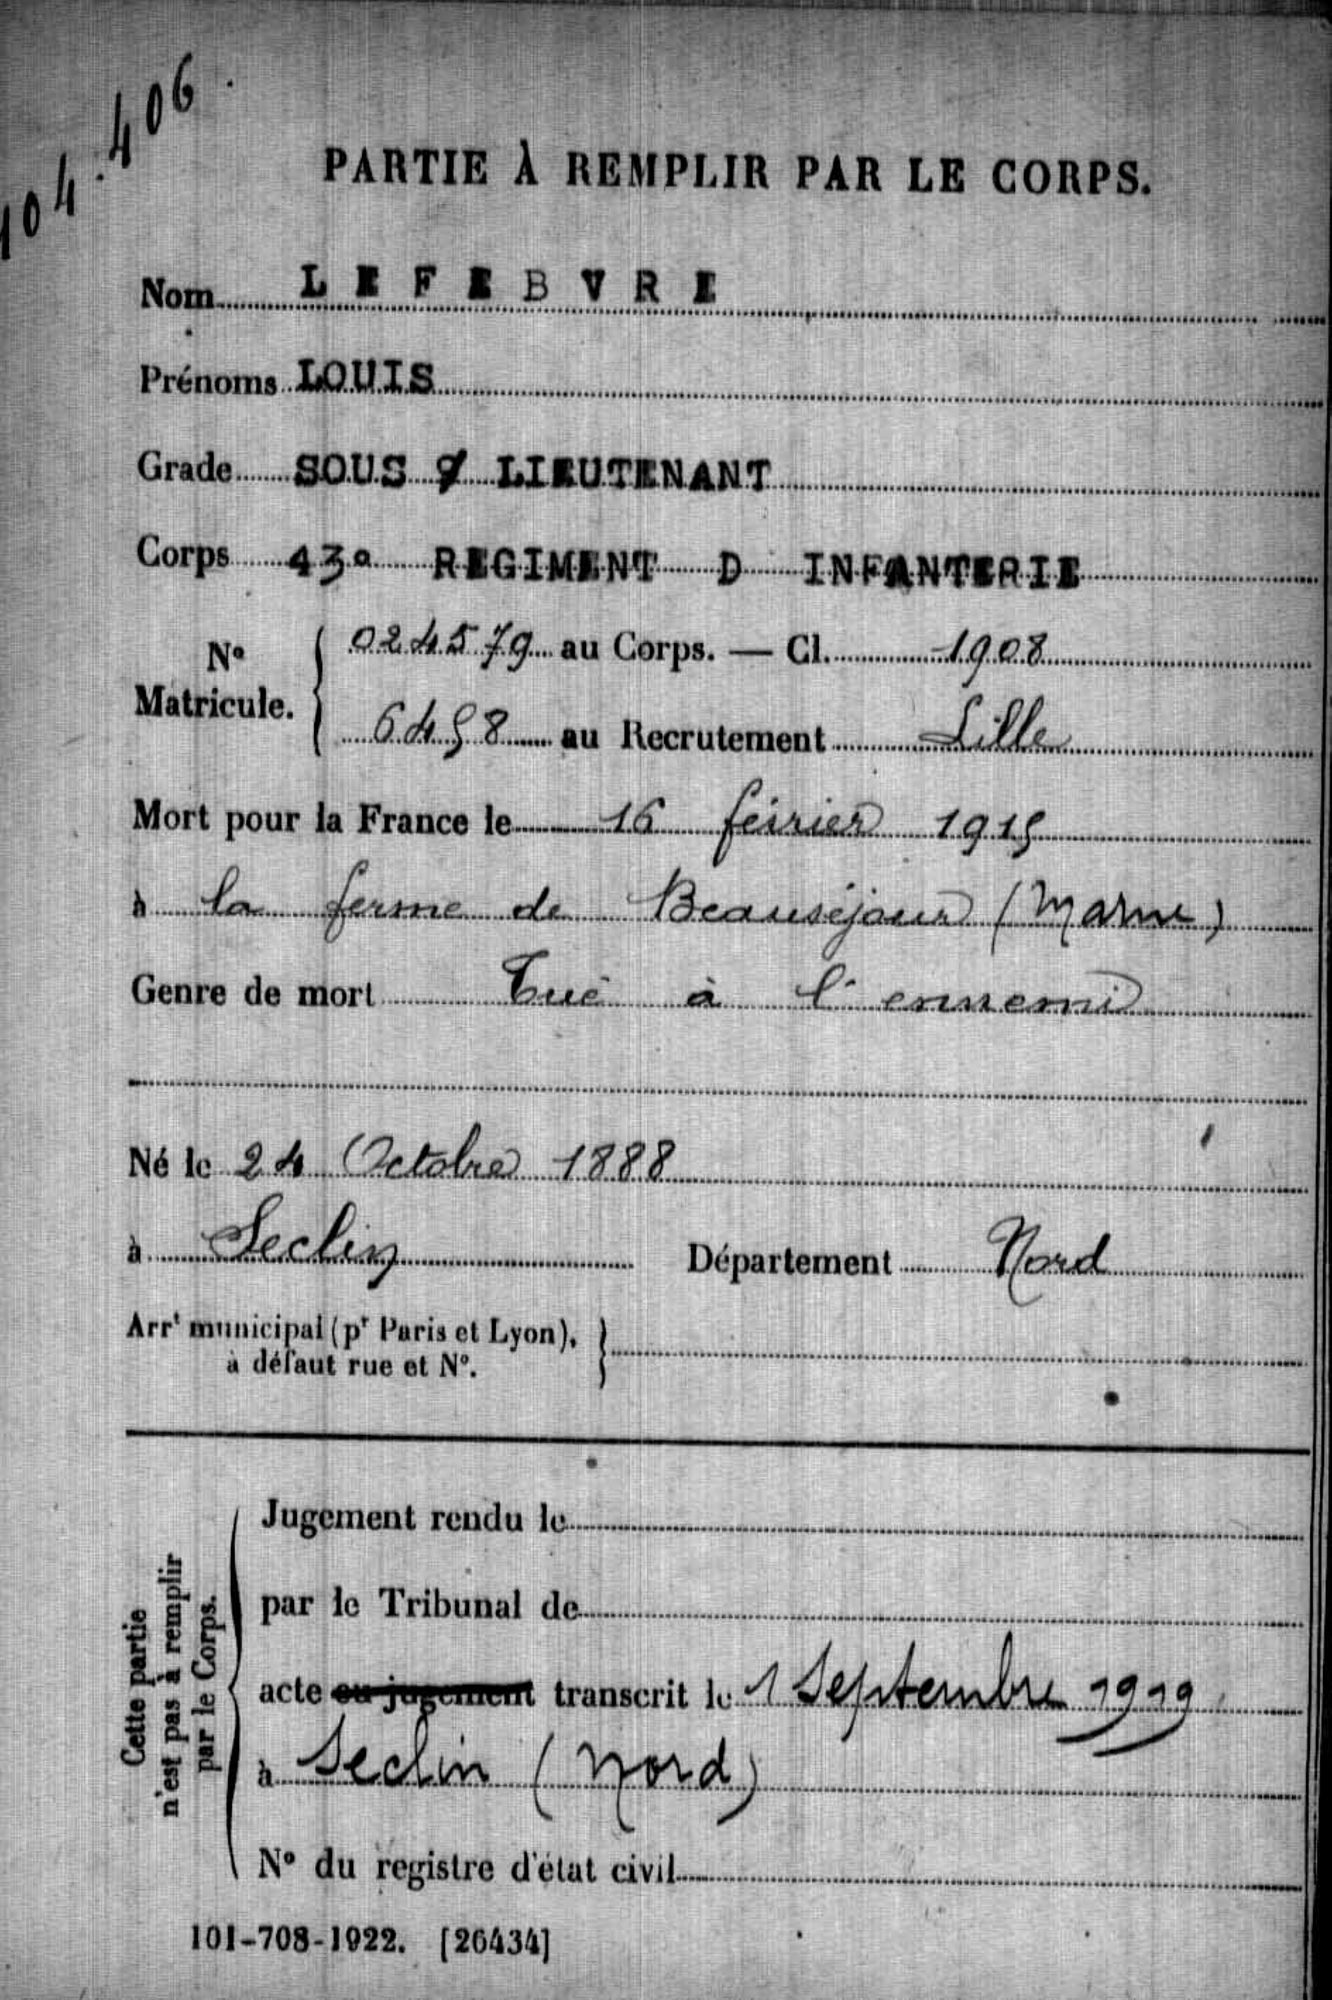 104.406.
PARTIE À REMPLIR PAR LE CORPS.
Nom LEFEBVRE
Prénoms LOUIS
Grade SOUS LIEUTENANT
Corps 43e REGIMENT D INFANTERIE
No Matricule. { 024579 au Corps. — Cl. 1908
6458 au Recrutement Lille
Mort pour la France le 16 février 1915
à la ferme de Beauséjour (Marne)
Genre de mort Tué à l'ennemi
Né le 24 Octobre 1888
à Seclin Département Nord
Arrt municipal (pr Paris et Lyon), à défaut rue et No. }
Cette partie n'est pas à remplir par le Corps.
Jugement rendu le
par le Tribunal de
acte ou jugement transcrit le 1 Septembre 1919
à Seclin (Nord)
No du registre d'état civil
101-708-1922. [26434]